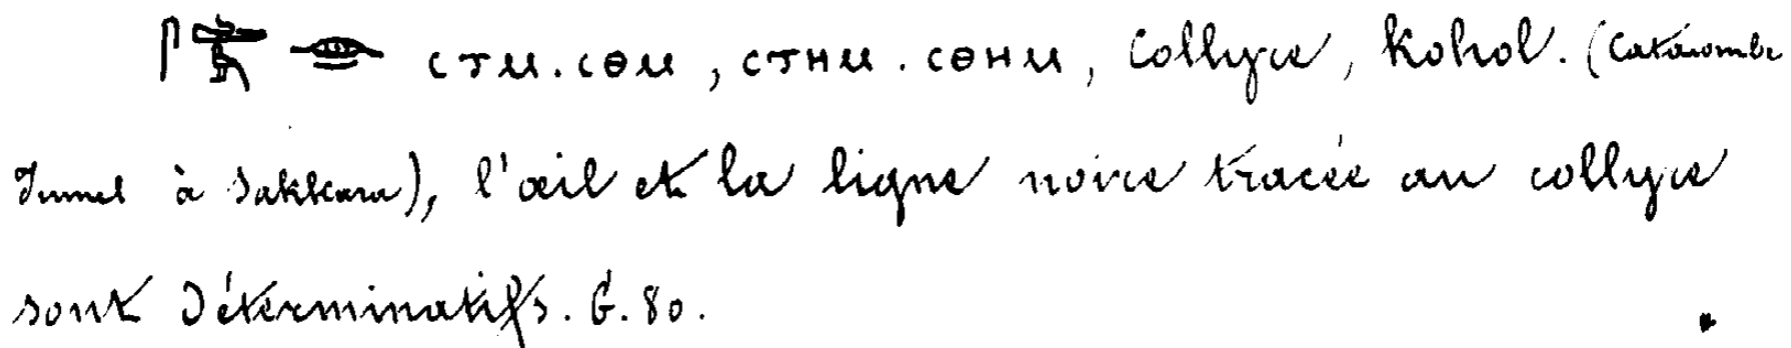 ⲥⲧⲙ. ⲥⲑⲙ, ⲥⲧⲏⲙ. ⲥⲑⲏⲙ, Collyre, Kohol. (Catacombe
Jumel à Sakkara), l'œil et la ligne noire tracée au collyre
sont Déterminatifs. G. 80.